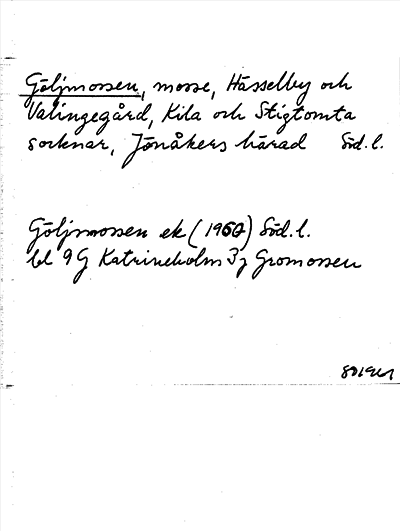 Göljmossen, mosse, Hässelby och
Valingegård, Kila och Stigtomta
socknar, Jönåkers härad Söd. l.
Göljmossen ek (1960) Söd. l.
bl 9 G Katrineholm 3j Gromossen